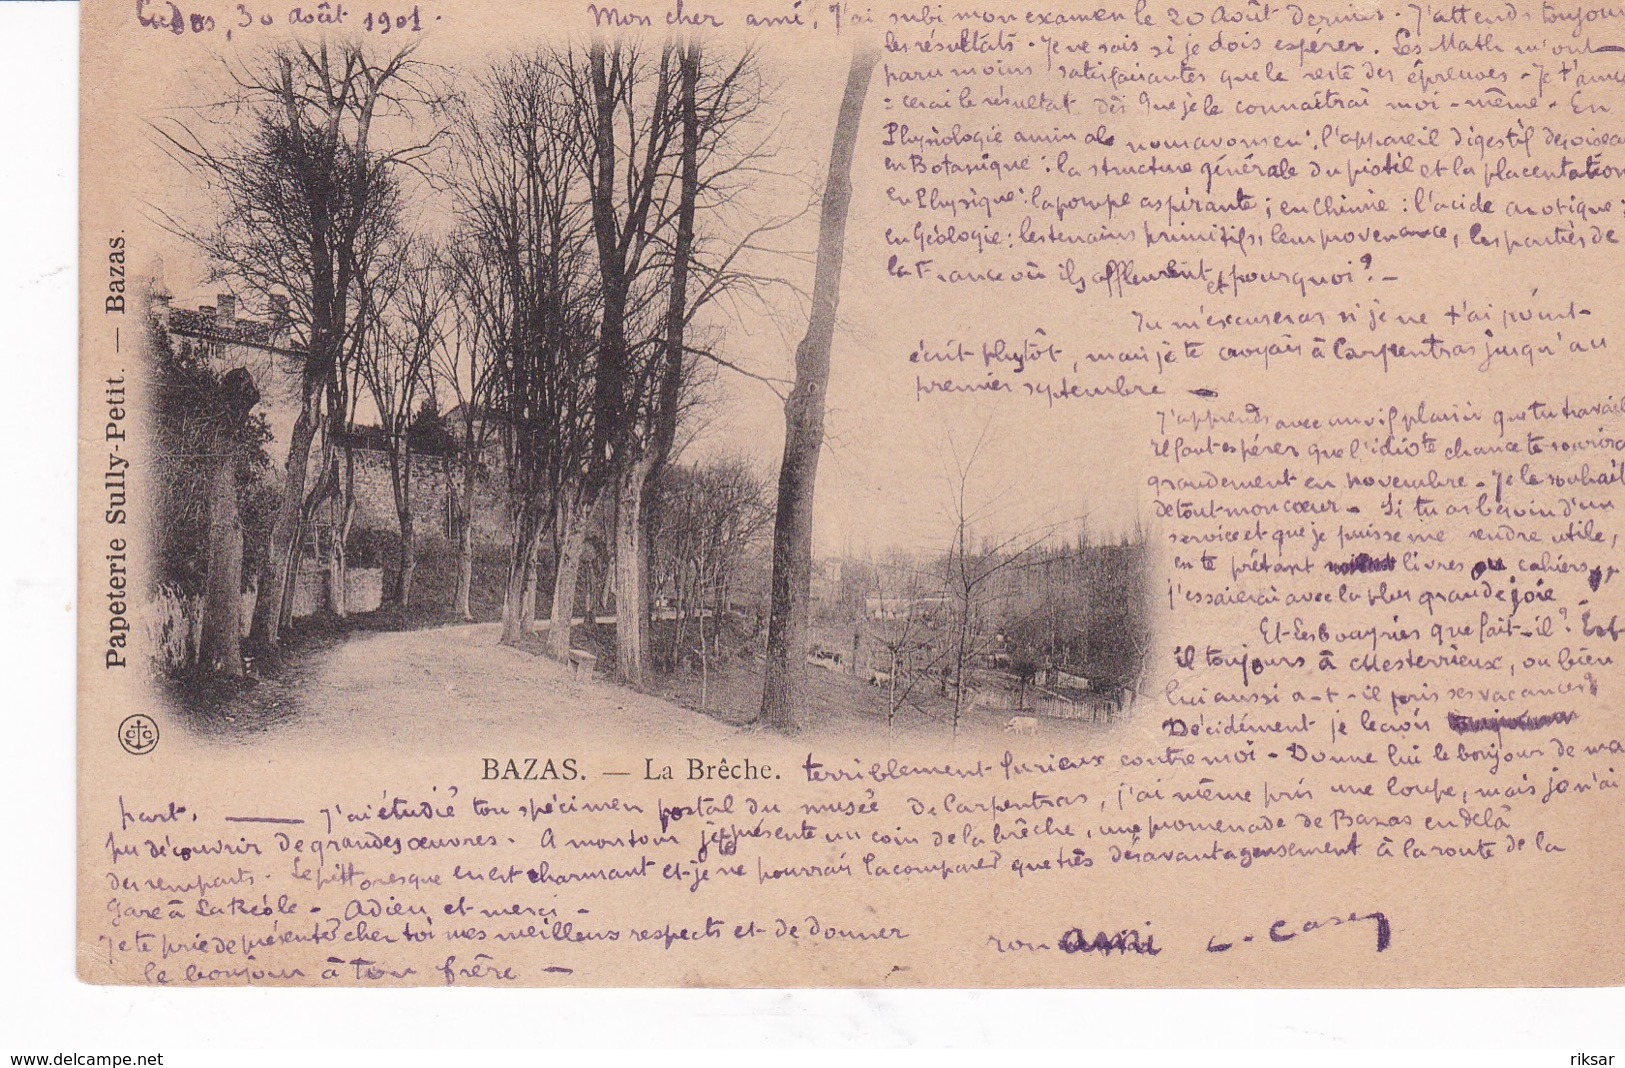 Cudos, 30 août 1901. Mon cher ami, J'ai subi mon examen le 20 Août dernier. J'attends toujour
les résultats. Je ne sais si je dois espérer. Les Math m'ont
paru moins satisfaisantes que le reste des épreuves - Je t'annon
: cerai le résultat dès que je le connaîtrai moi-même. En
Physiologie animale nous avons eu : l'appareil digestif des oiseau
en Botanique : la structure générale du pistil et la placentation
en Physique : la pompe aspirante ; en Chimie : l'acide azotique ;
en Géologie : les terrains primitifs, leur provenance, les parties de
la France où ils affleurent et pourquoi ? -
Tu m'excuseras si je ne t'ai point
écrit plutôt, mais je te croyais à Carpentras jusqu'au
premier septembre -
J'apprends avec un vif plaisir que tu travail
Il faut espérer que l'idiote chance te sourira
grandement en novembre. Je le souhait
de tout mon cœur. Si tu as besoin d'un
service et que je puisse me rendre utile,
en te prêtant livres ou cahiers,
j'essaierai avec la plus grande joie
Et que fait-il ? Est-
il toujours à Mesterrieux, ou bien
lui aussi a-t-il pris ses vacances ?
Décidément je le crois
terriblement furieux contre moi - Donne lui le bonjour de ma
part. J'ai étudié ton spécimen postal du musée de Carpentras, j'ai même pris une loupe, mais je n'ai
pu découvrir de grandes œuvres. A mon tour je présente un coin de la brèche, une promenade de Bazas en delà
des remparts. Le pittoresque en est charmant et je ne pourrais la comparer que très désavantageusement à la route de la
Gare à La Réole - Adieu et merci -
Je te prie de présenter chez toi mes meilleurs respects et de donner
le bonjour à ton frère -
Ton ami
Papeterie Sully-Petit. — Bazas.
CC
BAZAS. — La Brêche.
www.delcampe.net
riksar